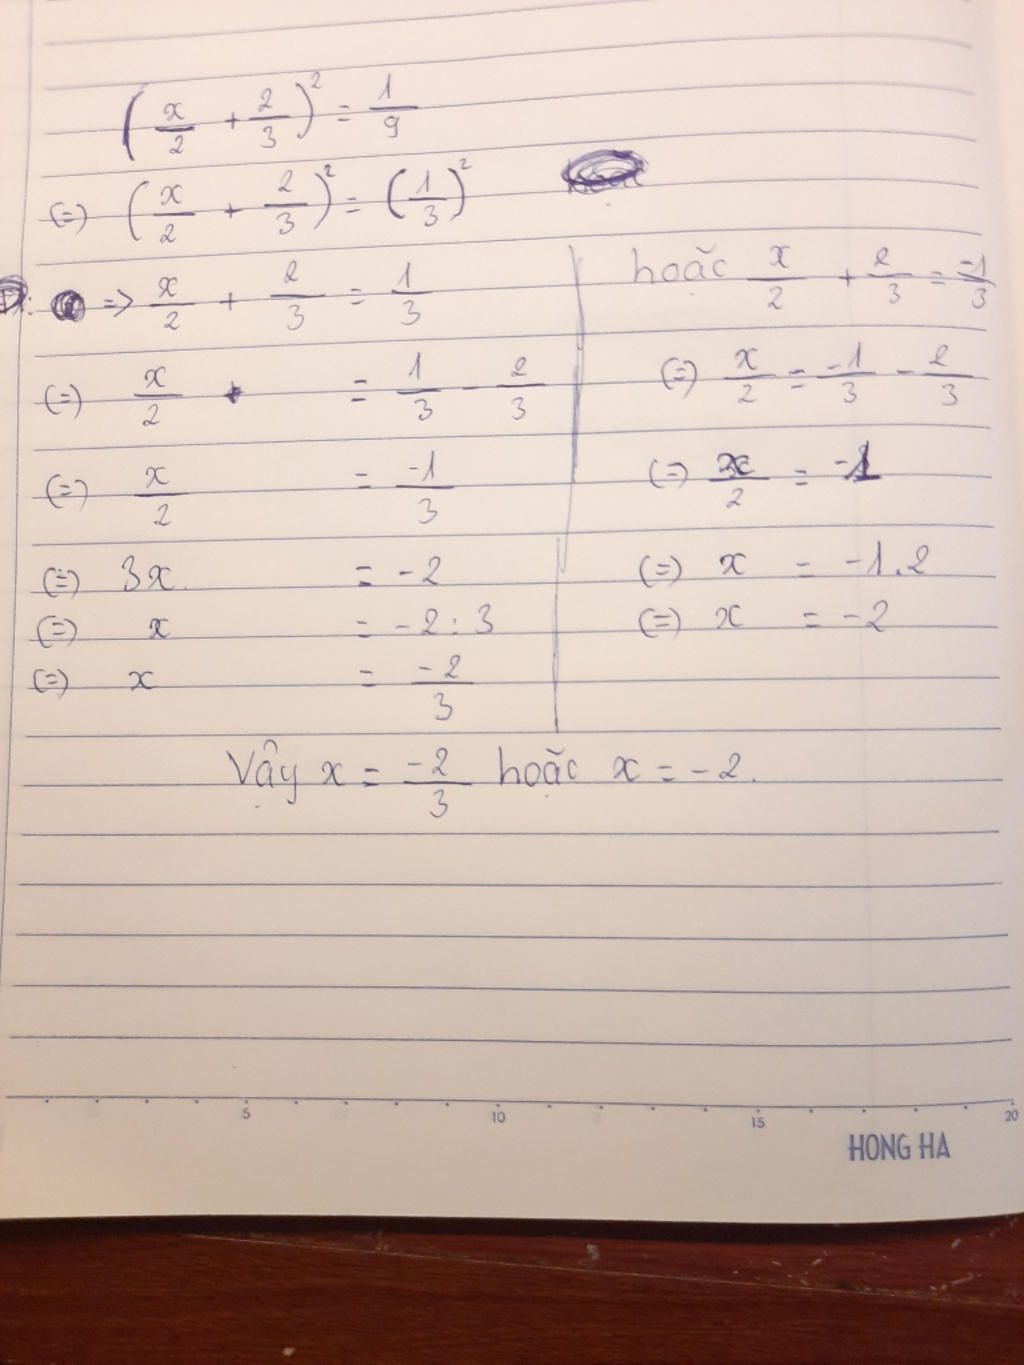 (x/2 + 2/3)² = 1/9
(=) (x/2 + 2/3)² = (1/3)²
=> x/2 + 2/3 = 1/3
(=) x/2 = 1/3 - 2/3
(=) x/2 = -1/3
(=) 3x = -2
(=) x = -2 : 3
(=) x = -2/3
hoặc x/2 + 2/3 = -1/3
(=) x/2 = -1/3 - 2/3
(=) x/2 = -1
(=) x = -1.2
(=) x = -2
Vậy x = -2/3 hoặc x = -2.
5 10 15 20
HONG HA